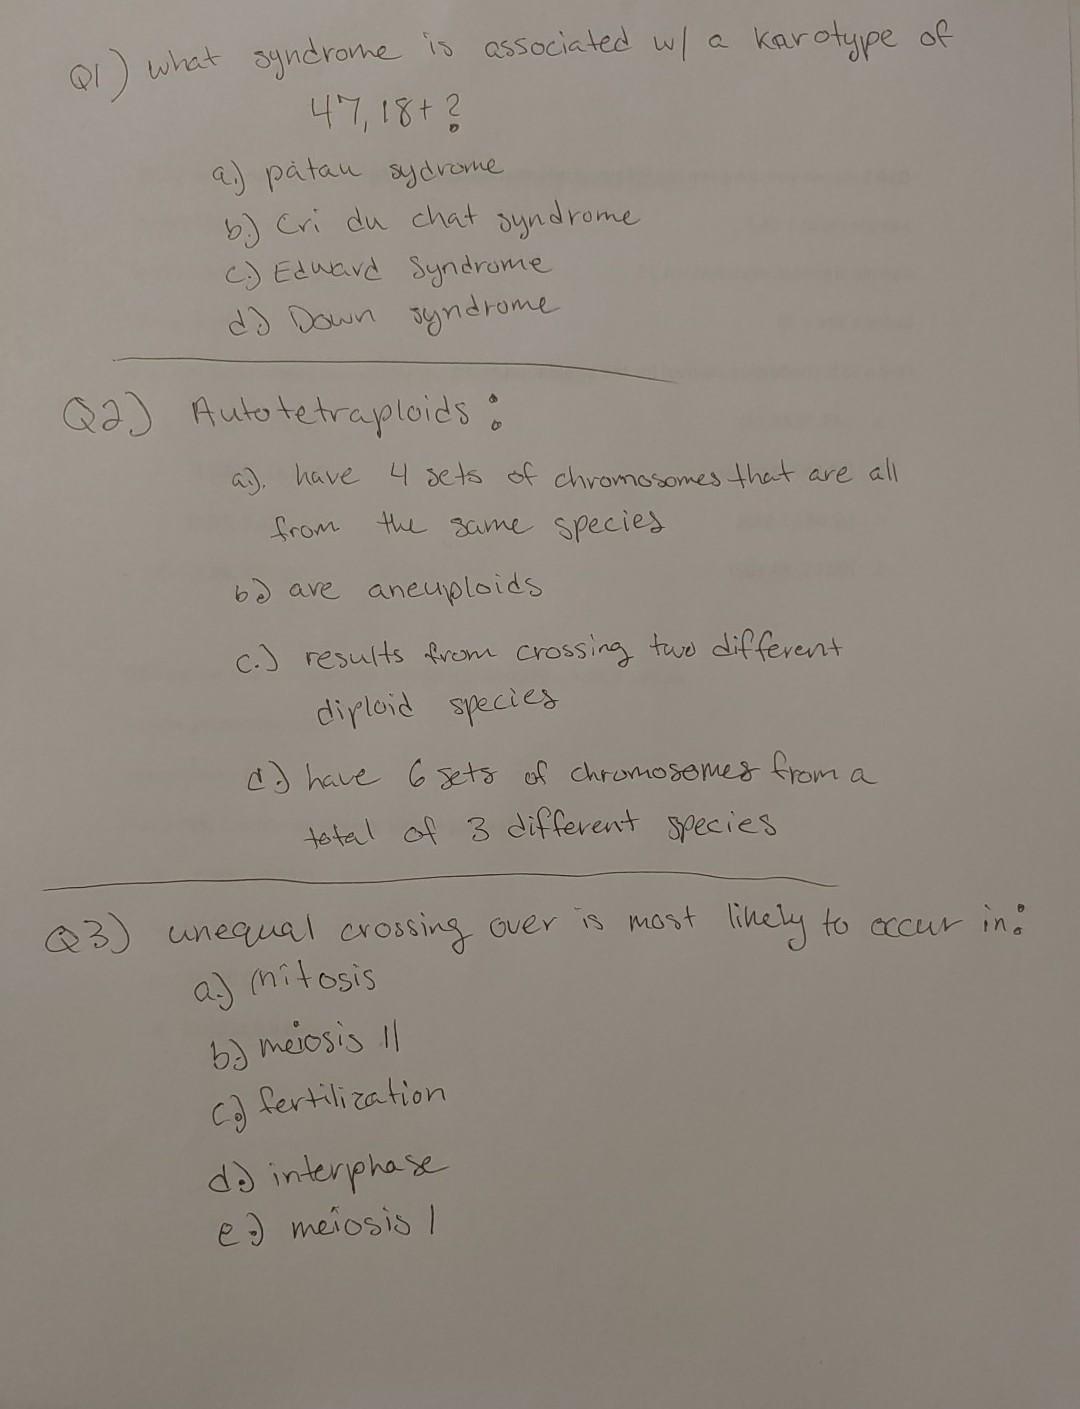 Q1) what syndrome is associated w/ a karotype of
47, 18+ ?
a.) patau sydrome
b.) Cri du chat syndrome
c.) Edward Syndrome
d.) Down syndrome
Q2) Autotetraploids :
a.). have 4 sets of chromosomes that are all
from the same species
b.) are aneuploids
c.) results from crossing two different
diploid species
d.) have 6 sets of chromosomes from a
total of 3 different species
Q3) unequal crossing over is most likely to occur in:
a.) mitosis
b.) meiosis II
c.) fertilization
d.) interphase
e.) meiosis I